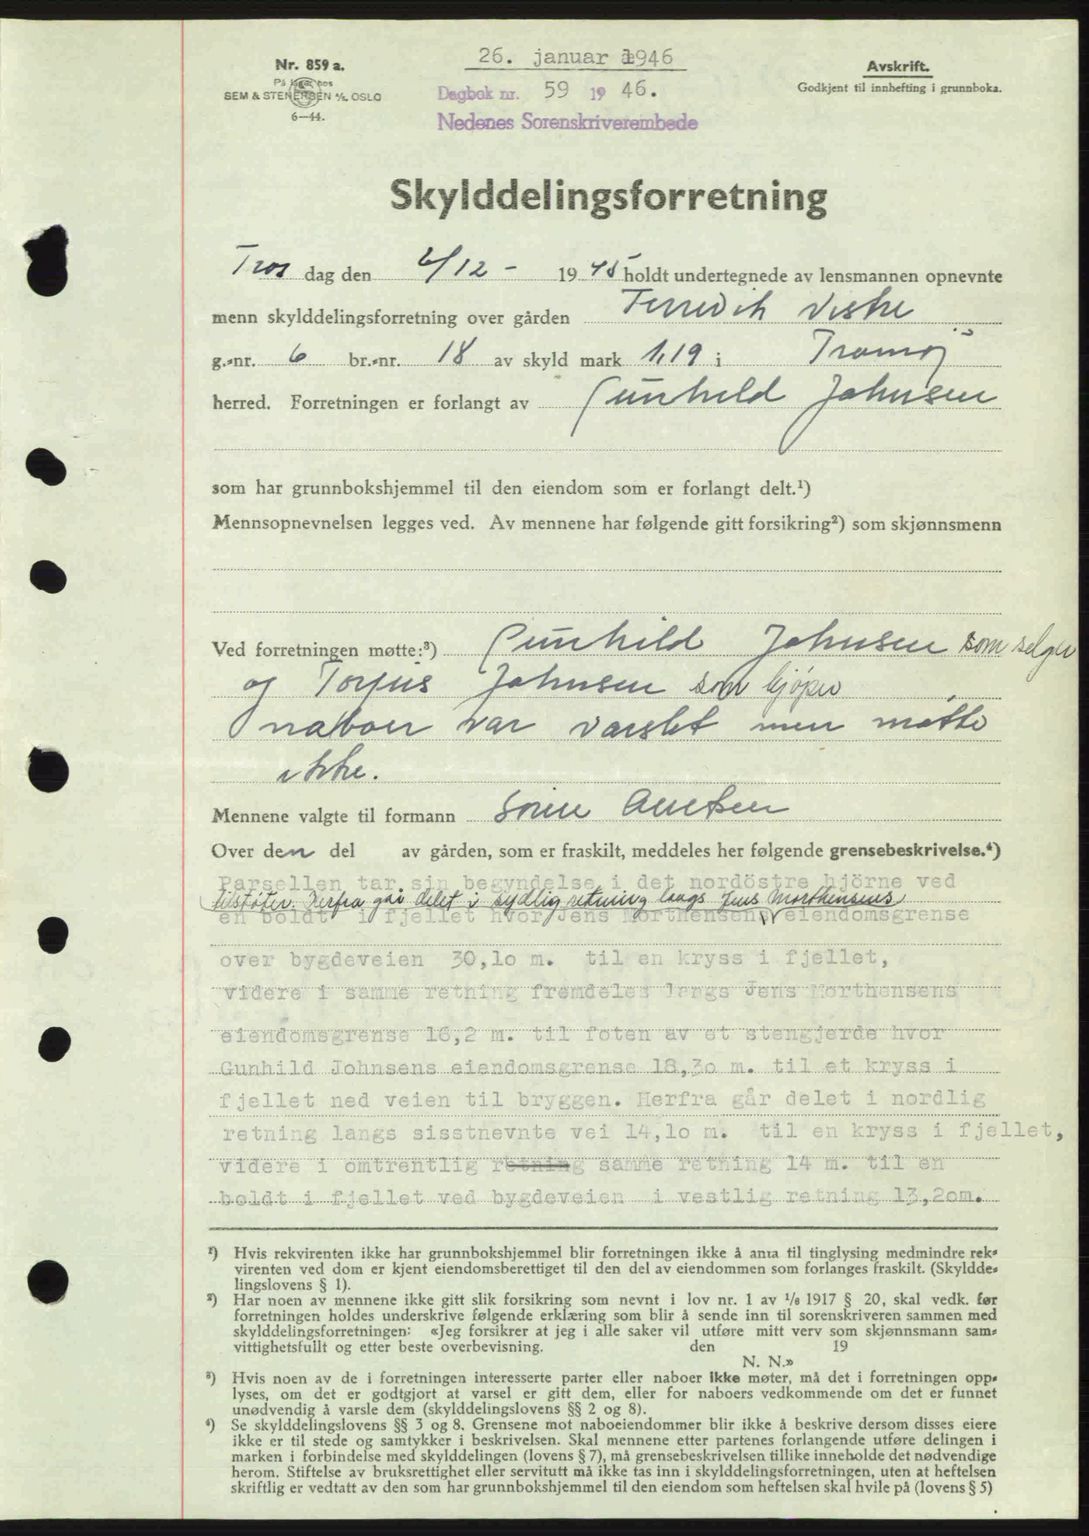 Nr. 859 a.
På lager hos
SEM & STENERSEN A/S, OSLO
6—44.
26. januar 1946
Dagbok nr. 59 1946.
Nedenes Sorenskriverembede
Avskrift.
Godkjent til innhefting i grunnboka.
Skylddelingsforretning
Tors dag den 6/12 - 1945 holdt undertegnede av lensmannen opnevnte
menn skylddelingsforretning over gården Færvik Vestre
g.-nr. 6 br.-nr. 18 av skyld mark 1,19 i Tromøy
herred. Forretningen er forlangt av Gunhild Johnsen
som har grunnbokshjemmel til den eiendom som er forlangt delt.¹)
Mennsopnevnelsen legges ved. Av mennene har følgende gitt forsikring²) som skjønnsmenn
Ved forretningen møtte:³) Gunhild Johnsen som selger
og Torjus Johnsen som kjøper
naboer var varslet men møtte
ikke.
Mennene valgte til formann
Over den del av gården, som er fraskilt, meddeles her følgende grensebeskrivelse.⁴)
Parsellen tar sin begyndelse i det nordöstre hjörne ved
tilstøter. Derfra går delet i sydlig retning langs Jens Morthensens
en boldt i fjellet hvor Jens Morthensens eiendomsgrense
over bygdeveien 30,10 m. til en kryss i fjellet,
videre i samme retning fremdeles langs Jens Morthensens
eiendomsgrense 16,2 m. til foten av et stengjerde hvor
Gunhild Johnsens eiendomsgrense 18,30 m. til et kryss i
fjellet ned veien til bryggen. Herfra går delet i nordlig
retning langs sisstnevnte vei 14,10 m. til en kryss i fjellet,
videre i omtrentlig retning samme retning 14 m. til en
boldt i fjellet ved bygdeveien i vestlig retning 13,20m.
¹) Hvis rekvirenten ikke har grunnbokshjemmel blir forretningen ikke å anta til tinglysing medmindre rek-
virenten ved dom er kjent eiendomsberettiget til den del av eiendommen som forlanges fraskilt. (Skyldde-
lingslovens § 1).
²) Har noen av mennene ikke gitt slik forsikring som nevnt i lov nr. 1 av 1/6 1917 § 20, skal vedk. før
forretningen holdes underskrive følgende erklæring som blir å sende inn til sorenskriveren sammen med
skylddelingsforretningen: «Jeg forsikrer at jeg i alle saker vil utføre mitt verv som skjønnsmann sam-
vittighetsfullt og etter beste overbevisning. den 19
N. N.»
³) Hvis noen av de i forretningen interesserte parter eller naboer ikke møter, må det i forretningen opp-
lyses, om det er godtgjort at varsel er gitt dem, eller for naboers vedkommende om det er funnet
unødvendig å varsle dem (skylddelingslovens §§ 2 og 8).
⁴) Se skylddelingslovens §§ 3 og 8. Grensene mot naboeiendommer blir ikke å beskrive dersom disses eiere
ikke er til stede og samtykker i beskrivelsen. Skal mennene etter partenes forlangende utføre delingen i
marken i forbindelse med skylddelingen (lovens § 7), må grensebeskrivelsen tillike inneholde det nødvendige
herom. Stiftelse av bruksrettighet eller servitutt må ikke tas inn i skylddelingsforretningen, uten at heftelsen
skriftlig er vedtatt av den som har grunnbokshjemmel til den eiendom som heftelsen skal hvile på (lovens § 5)